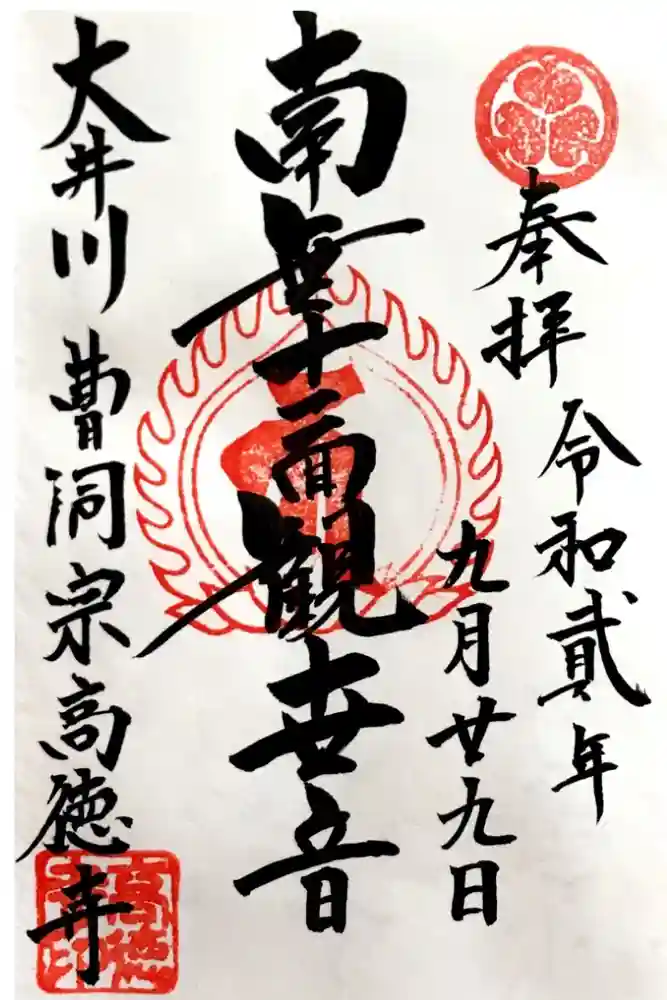 奉拝
令和貳年
九月廿九日
南無十一面観世音
大井川 曹洞宗高徳寺